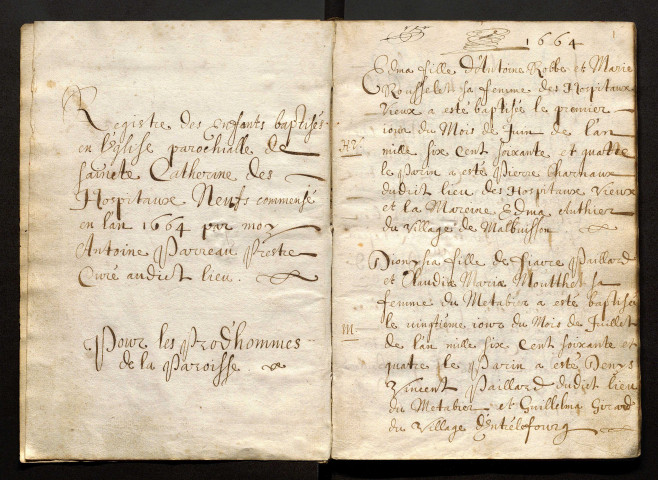 Registre des enfants baptisés
en l'église parochialle de
saincte Catherine des
Hospitaux Neufs commensé
en l'an 1664 par moy
Antoine Parreau Prestre
Curé audict lieu.
Pour les Prod'hommes
de la Paroisse
1664
Edma fille d'Antoine Robbe et Marie
Rousselet sa femme des Hospitaux
Vieux a esté baptisée le premier
iour du Mois de Juin de l'an
HV
mille six Cent soixante et quattre
le parin a esté Pierre Charnaux
dudict lieu des Hospitaux Vieux
et la Mareine Edma Authier
du Village de Malbuisson
Dionysia fille de Fiacre Paillard
et Claudia Maria Moutthet sa
femme du Metabier a esté baptisée
le vingtiéme iour du Mois de Juillet
M
de l'an mille six Cent soixante et
quatre le Parin a esté Denys
Vincent Paillard dudict lieu
du Metabier et Guillelma Girard
du Village d'Entrélefourg